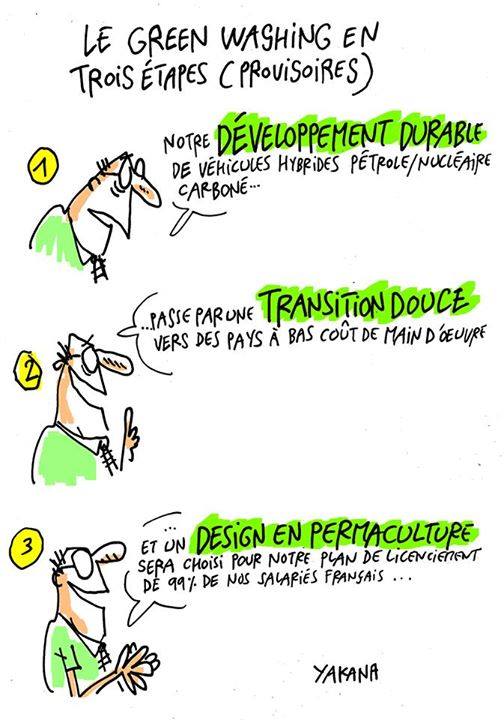 LE GREEN WASHING EN
TROIS ÉTAPES (PROVISOIRES)
1
NOTRE DÉVELOPPEMENT DURABLE
DE VÉHICULES HYBRIDES PÉTROLE/NUCLÉAIRE
CARBONÉ...
2
...PASSE PAR UNE TRANSITION DOUCE
VERS DES PAYS À BAS COÛT DE MAIN D'OEUVRE
3
...
ET UN DESIGN EN PERMACULTURE
SERA CHOISI POUR NOTRE PLAN DE LICENCIEMENT
DE 99% DE NOS SALARIÉS FRANÇAIS ...
YAKANA